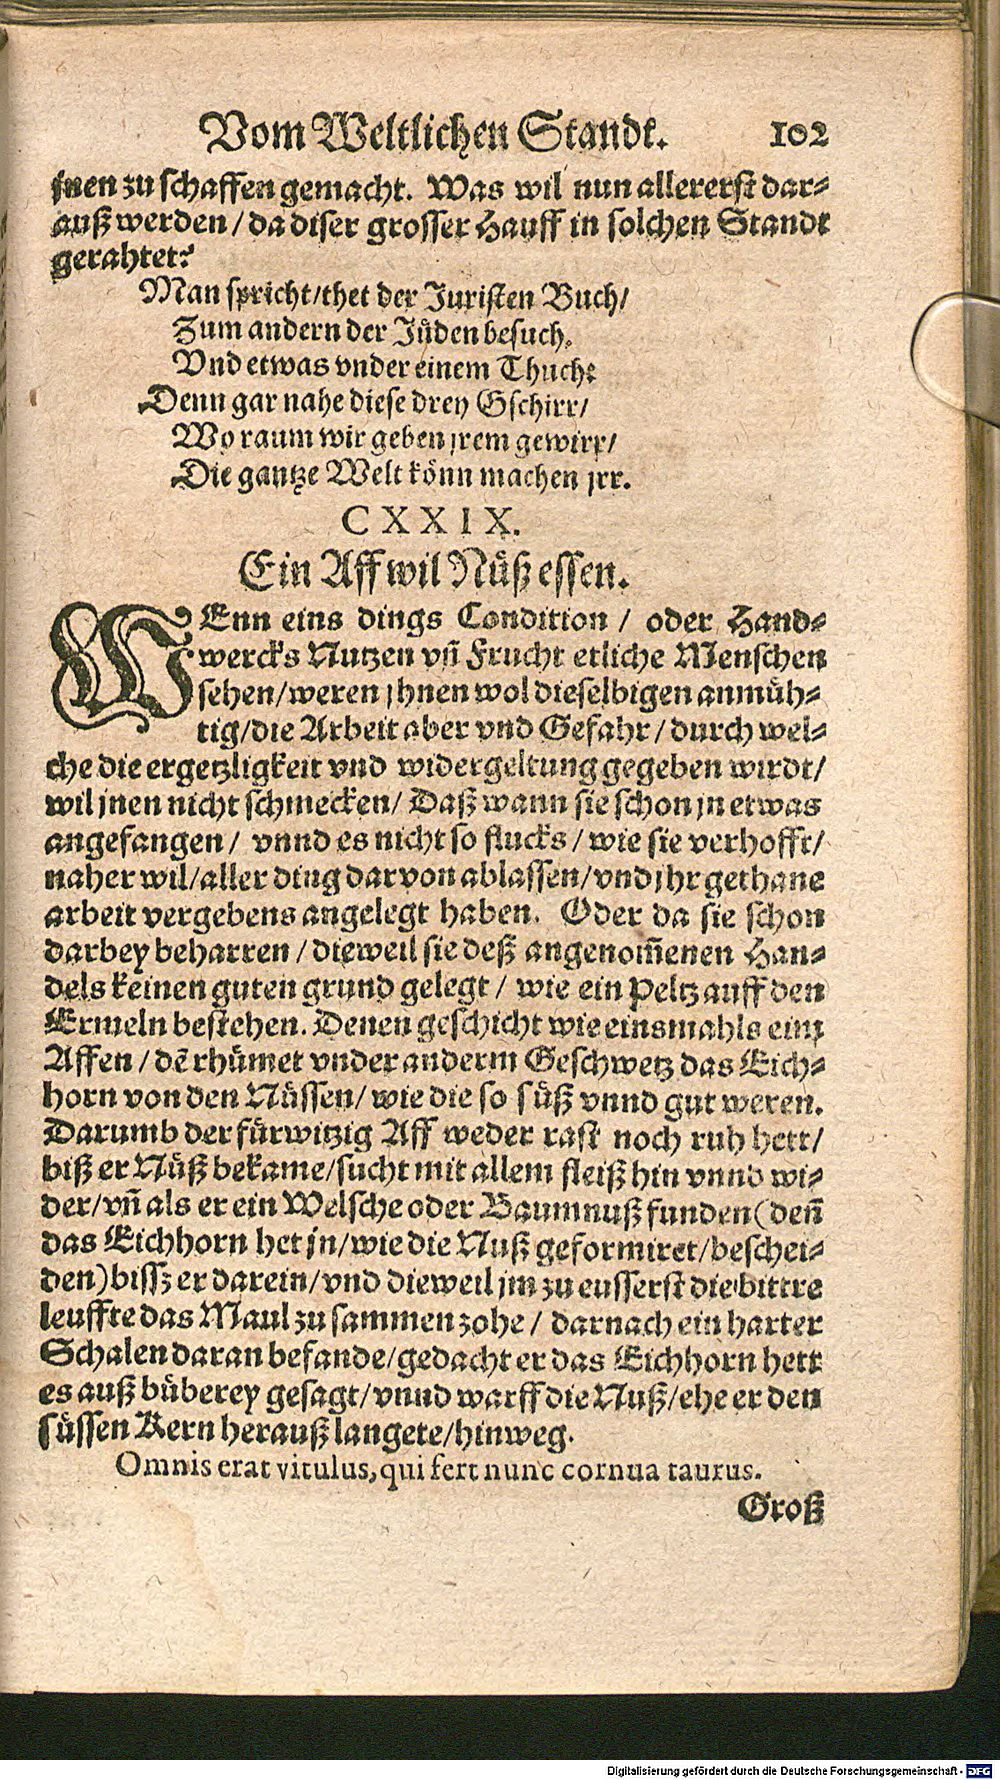 Vom Weltlichen Standt. 102
jnen zu schaffen gemacht. Was wil nun allererst dar-
auß werden / da diser grosser Hauff in solchen Standt
gerahtet?
Man spricht/thet der Juristen Buch/
Zum andern der Jüden besuch.
Vnd etwas vnder einem Thuch:
Denn gar nahe diese drey Gschirr/
Wo raum wir geben jrem gewirr/
Die gantze Welt könn machen jrr.
CXXIX.
Ein Aff wil Nüß essen.
WEnn eins dings Condition / oder Hand-
wercks Nutzen vñ Frucht etliche Menschen
sehen/weren jhnen wol dieselbigen anmüh-
tig/die Arbeit aber vnd Gefahr / durch wel-
che die ergetzligkeit vnd widergeltung gegeben wirdt/
wil jnen nicht schmecken/ Daß wann sie schon jn etwas
angefangen / vnnd es nicht so flucks / wie sie verhofft/
naher wil/aller ding darvon ablassen/vnd jhr gethane
arbeit vergebens angelegt haben. Oder da sie schon
darbey beharren / dieweil sie deß angenom̃enen Han-
dels keinen guten grund gelegt / wie ein Peltz auff den
Ermeln bestehen. Denen geschicht wie einsmahls eim
Affen / dẽ rhümet vnder anderm Geschwetz das Eich-
horn von den Nüssen/ wie die so süß vnnd gut weren.
Darumb der fürwitzig Aff weder rast noch ruh hett/
biß er Nüß bekame/sucht mit allem fleiß hin vnnd wi-
der/vñ als er ein Welsche oder Baumnuß funden (deñ
das Eichhorn het jn/wie die Nuß geformiret/beschei-
den) bissz er darein/vnd dieweil jm zu eusserst die bittre
leuffte das Maul zu sammen zohe / darnach ein harter
Schalen daran befande/gedacht er das Eichhorn hett
es auß büberey gesagt/vnnd warff die Nuß/ehe er den
süssen Kern herauß langete/hinweg.
Omnis erat vitulus, qui fert nunc cornua taurus.
Groß
Digitalisierung gefördert durch die Deutsche Forschungsgemeinschaft - DFG